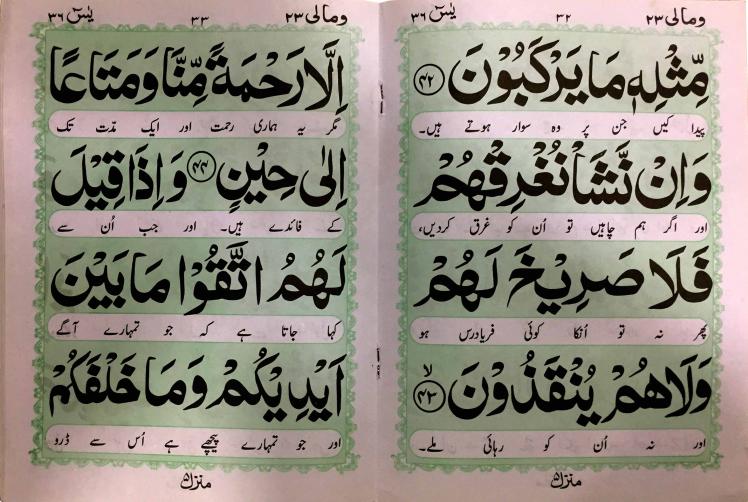 ومالی ۲۳
۳۲
یٰسٓ ۳۶
مِّثْلِهٖ مَا يَرْكَبُوْنَ ﴿۴۲﴾
پیدا کیں جن پر وہ سوار ہوتے ہیں۔
وَاِنْ نَّشَاْ نُغْرِقْهُمْ
اور اگر ہم چاہیں تو اُن کو غرق کردیں،
فَلَا صَرِيْخَ لَهُمْ
پھر نہ تو اُنکا کوئی فریادرس ہو
وَلَا هُمْ يُنْقَذُوْنَ ﴿۴۳﴾ لا
اور نہ اُن کو رہائی ملے۔
منزل ۵
ومالی ۲۳
۳۳
یٰسٓ ۳۶
اِلَّا رَحْمَةً مِّنَّا وَمَتَاعًا
مگر یہ ہماری رحمت اور ایک مدّت تک
اِلٰى حِيْنٍ ﴿۴۴﴾ وَاِذَا قِيْلَ
کے فائدے ہیں۔ اور جب اُن سے
لَهُمُ اتَّقُوْا مَا بَيْنَ
کہا جاتا ہے کہ جو تمہارے آگے
اَيْدِيْكُمْ وَمَا خَلْفَكُمْ
اور جو تمہارے پیچھے ہے اُس سے ڈرو
منزل ۵